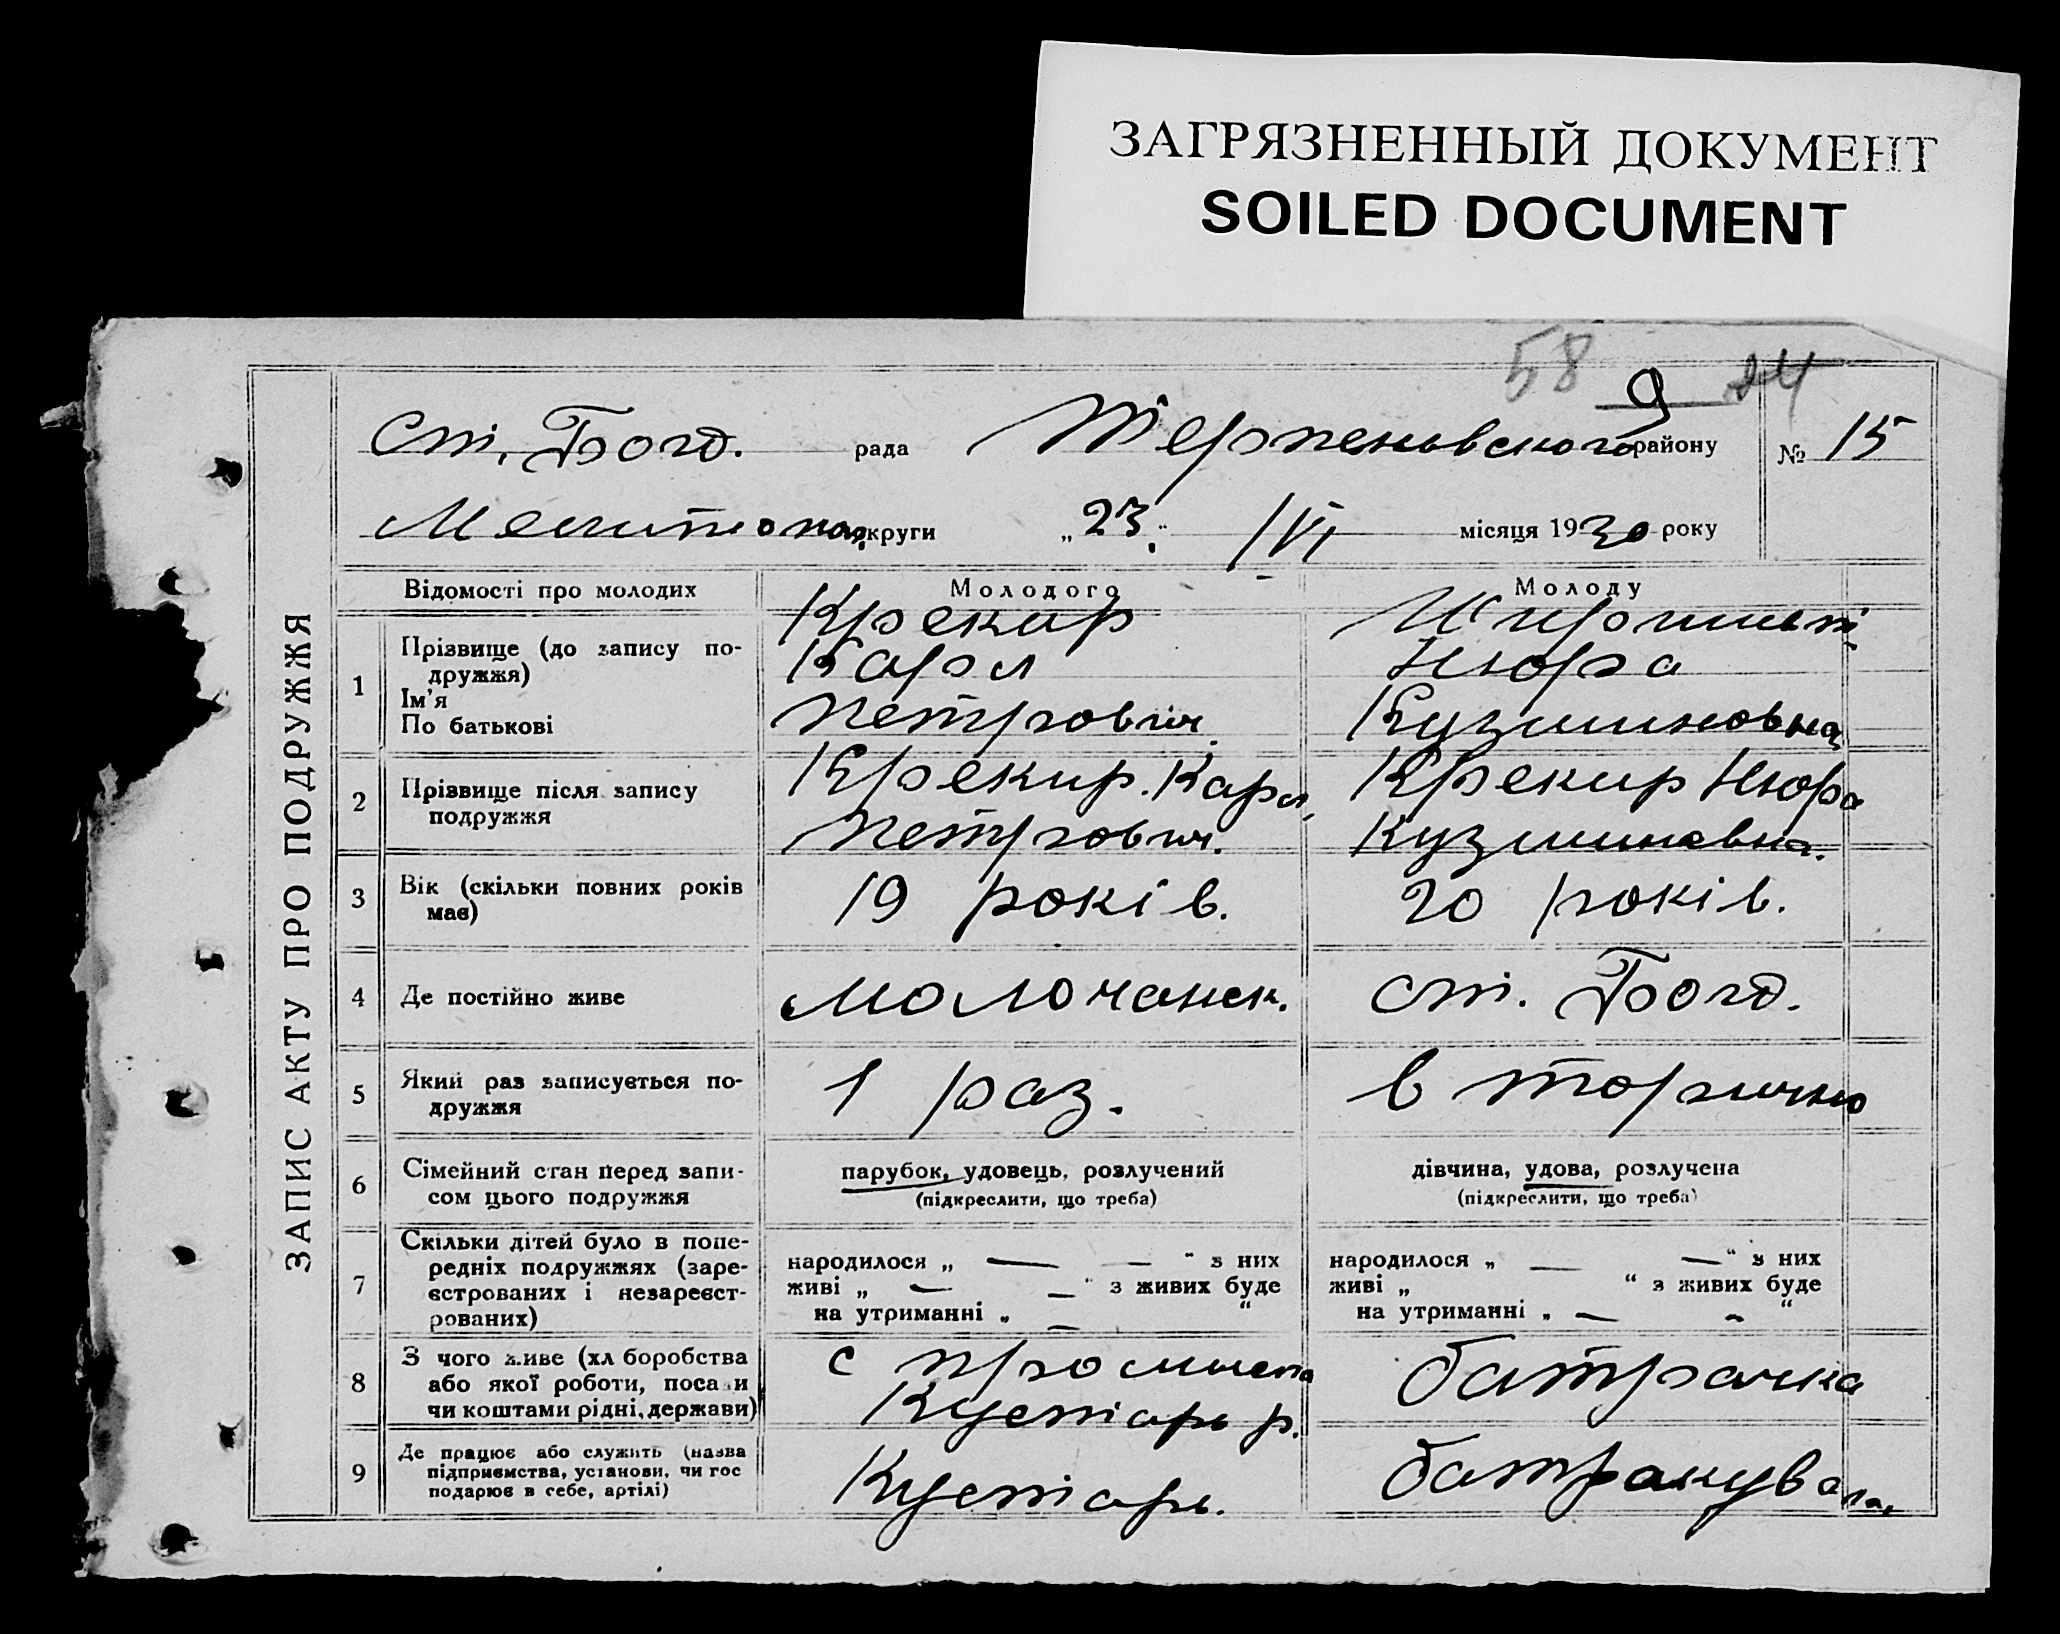 ЗАГРЯЗНЕННЫЙ ДОКУМЕНТ
SOILED DOCUMENT
58 9 24
ст. Богд. рада Терпеновського району № 15
Мелитопол. округи „23“ /VI місяця 1930 року
ЗАПИС АКТУ ПРО ПОДРУЖЖЯ
Відомості про молодих Молодого Молоду
1 Прізвище (до запису подружжя) Крекир
Ім'я Карл Нюра
По батькові Петрович Кузминовна
2 Прізвище після запису Крекир Карл Крекир Нюра
подружжя Петрович. Кузминовна.
3 Вік (скільки повних років 19 років. 20 років.
має)
4 Де постійно живе Молочанск. ст. Богд.
5 Який раз записується по- 1 раз. вторично
дружжя
6 Сімейний стан перед запи- парубок, удовець, розлучений дівчина, удова, розлучена
сом цього подружжя (підкреслити, що треба) (підкреслити, що треба)
7 Скільки дітей було в попе-
редніх подружжях (заре- народилося „ — — “ з них народилося „ — — “ з них
єстрованих і незареєст- живі „ — — “ з живих буде живі „ “ з живих буде
рованих) на утриманні „ — “ на утриманні „ — - “
8 З чого живе (хл боробства с промисла батрачка
або якої роботи, посади Кустарь р.
чи коштами рідні, держави)
9 Де працює або служить (назва Кустарь. батракувала.
підприємства, установи, чи гос
подарює в себе, артілі)